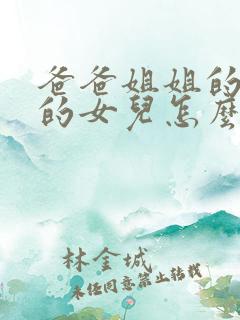 爸爸姐姐的
的女兒怎麼
林金城
未经同意禁止转载